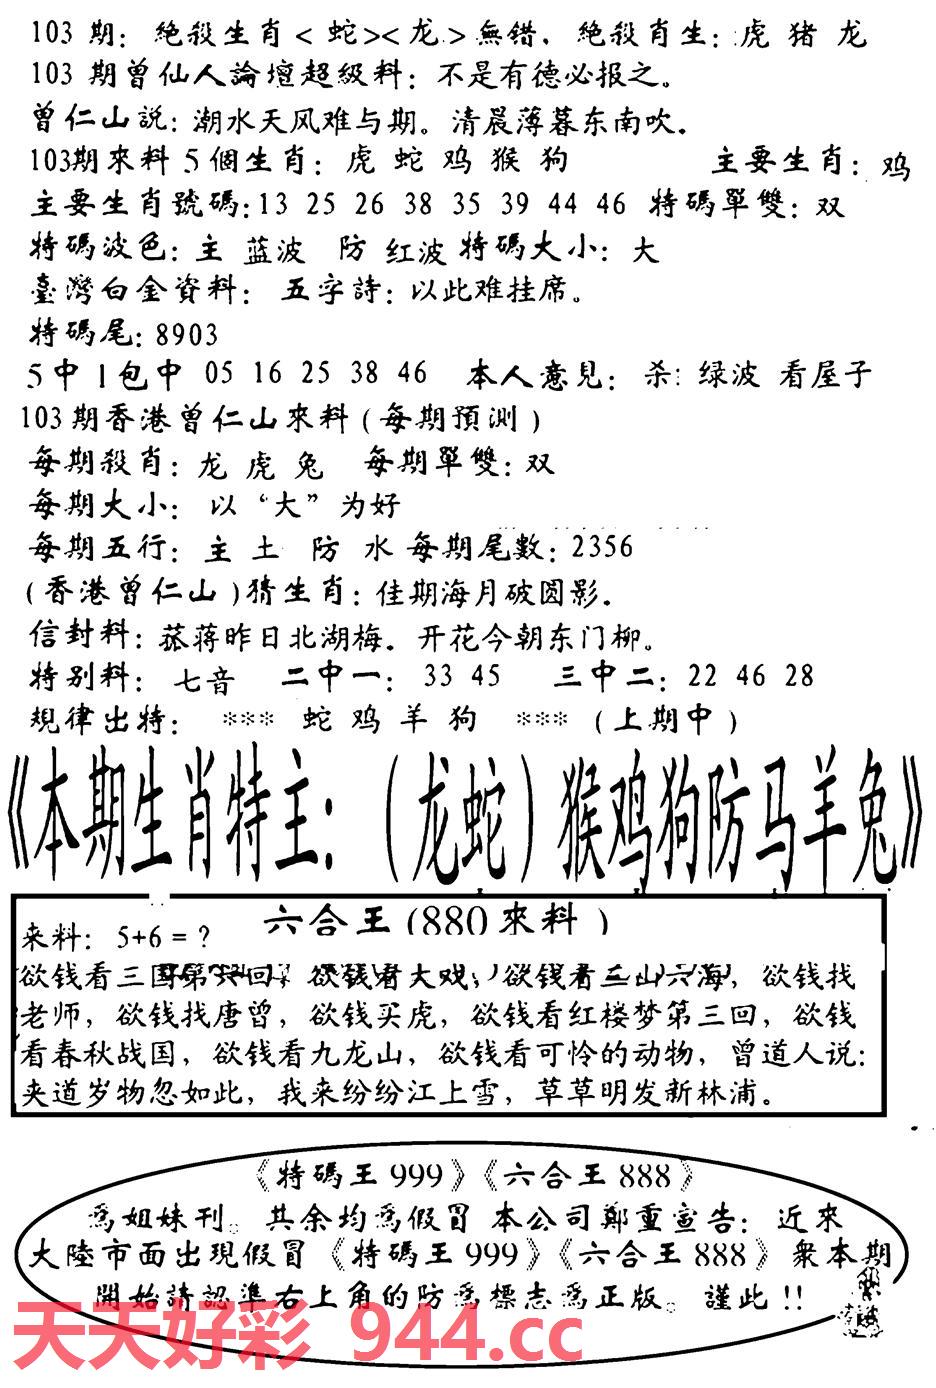 103 期: 絶殺生肖< 蛇><龙>無错. 絶殺肖生: 虎 猪 龙
103 期曾仙人論壇超級料: 不是有德必报之。
曾仁山説: 潮水天风难与期。清晨薄暮东南吹.
103期來料 5 個生肖: 虎 蛇 鸡 猴 狗 主要生肖: 鸡
主要生肖號碼:13 25 26 38 35 39 44 46 特碼單雙: 双
特碼波色: 主 蓝波 防 红波 特碼大小: 大
臺灣白金資料: 五字詩: 以此难挂席。
特碼尾: 8903
5 中 1 包中 05 16 25 38 46 本人意見: 杀: 绿波 看屋子
103 期香港曾仁山來料 ( 每期預測 )
每期殺肖: 龙 虎 兔 每期單雙: 双
每期大小: 以“大”为好
每期五行: 主 土 防 水 每期尾數: 2356
( 香港曾仁山 ) 猜生肖: 佳期海月破圆影.
信封料: 菰蒋昨日北湖梅. 开花今朝东门柳。
特别料: 七音 二中一: 33 45 三中二: 22 46 28
規律出特: *** 蛇 鸡 羊 狗 *** ( 上期中 )
《本期生肖特主: (龙蛇) 猴鸡狗防马羊兔》
六合王 (880 來料 )
来料: 5+6 = ?
欲钱看三国第六回, 欲钱看大戏, 欲钱看三山六海, 欲钱找
老师, 欲钱找唐曾, 欲钱买虎, 欲钱看红楼梦第三回, 欲钱
看春秋战国, 欲钱看九龙山, 欲钱看可怜的动物, 曾道人说:
夹道岁物忽如此, 我来纷纷江上雪, 草草明发新林浦。
《特碼王 999》《六合王 888》
爲姐妹刊。其余均爲假冒 本公司鄭重宣告: 近來
大陸市面出現假冒 《特碼王 999》《六合王 888》 衆本期
開始請認準右上角的防爲標志爲正版。謹此 !!
天天好彩 944.cc